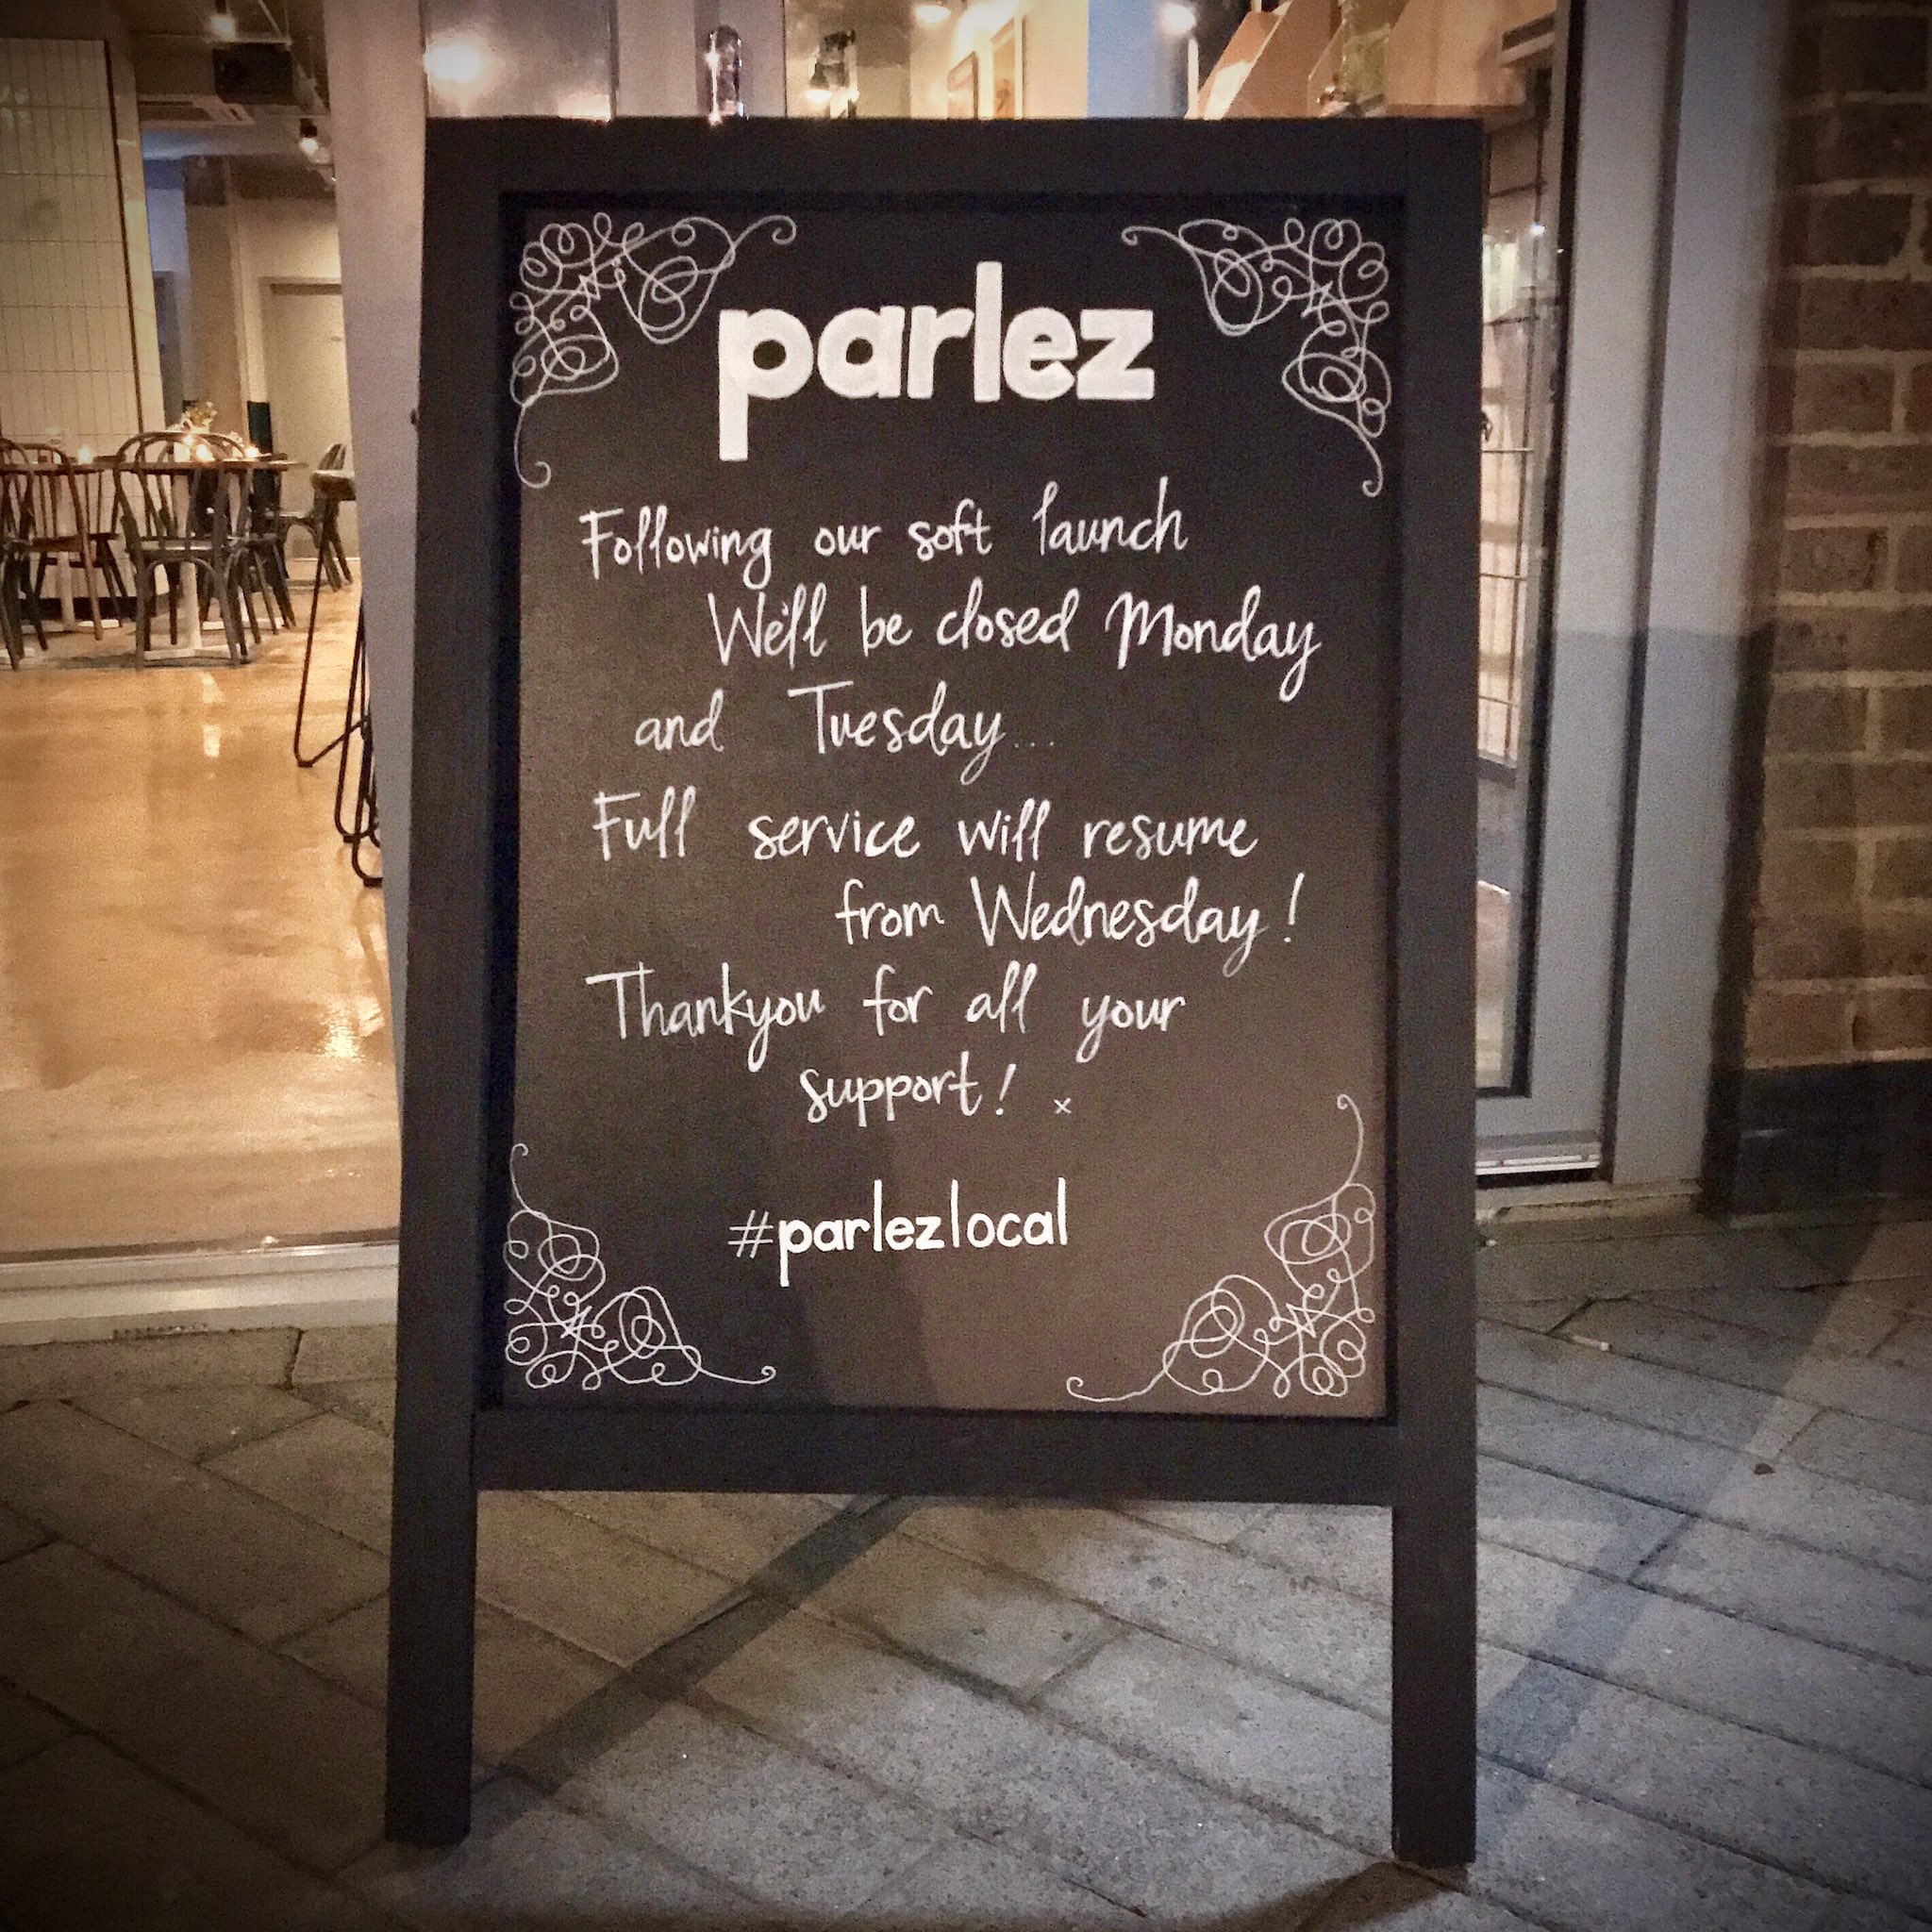 parlez
Following our soft launch
We'll be closed Monday
and Tuesday...
Full service will resume
from Wednesday!
Thankyou for all your
support! x
#parlezlocal